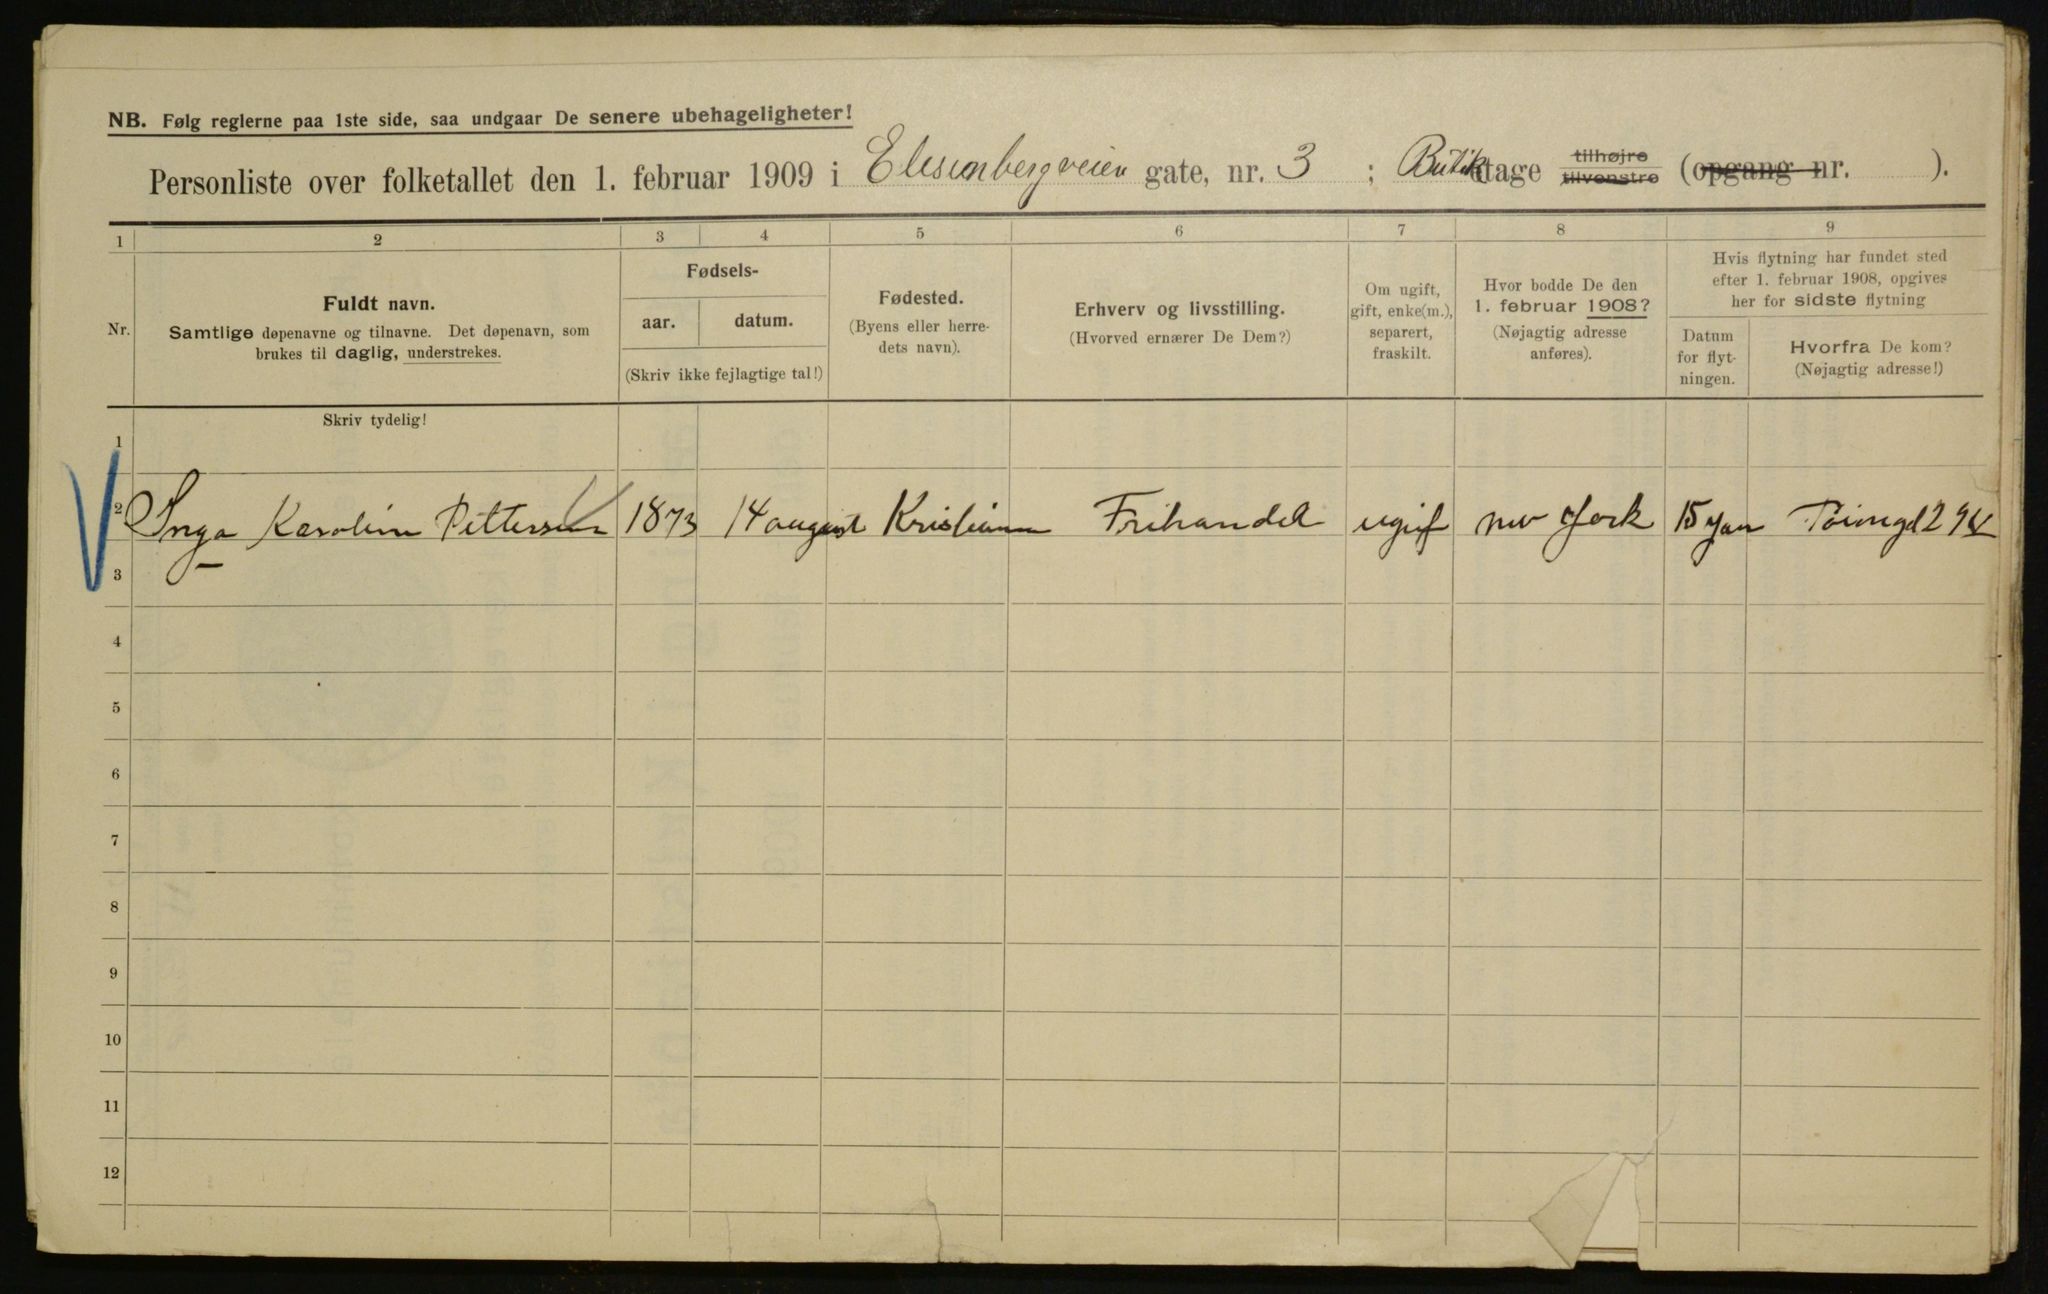 NB. Følg reglerne paa 1ste side, saa undgaar De senere ubehageligheter!
Personliste over folketallet den 1. februar 1909 i Elisenbergveien gate, nr. 3 ; Butik etage tilhøjre tilvenstre (opgang nr. ).
1 2 3 4 5 6 7 8 9
Nr.
Fuldt navn.
Samtlige døpenavne og tilnavne. Det døpenavn, som
brukes til daglig, understrekes.
Fødsels-
aar. datum.
(Skriv ikke fejlagtige tal!)
Fødested.
(Byens eller herre-
dets navn).
Erhverv og livsstilling.
(Hvorved ernærer De Dem?)
Om ugift,
gift, enke(m.),
separert,
fraskilt.
Hvor bodde De den
1. februar 1908?
(Nøjagtig adresse
anføres).
Hvis flytning har fundet sted
efter 1. februar 1908, opgives
her for sidste flytning
Datum
for flyt-
ningen.
Hvorfra De kom?
(Nøjagtig adresse!)
Skriv tydelig!
1
2 Inga Karolin Pettersen 1873 14 august Kristiania Frihandel ugif new York 15 jan
3
4
5
6
7
8
9
10
11
12